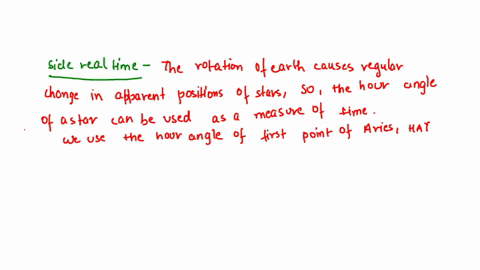 Side real time - The rotation of earth causes regular
change in apparent positions of stars, So, the hour angle
of a star can be used as a measure of time.
we use the hour angle of first point of Aries, HAϒ